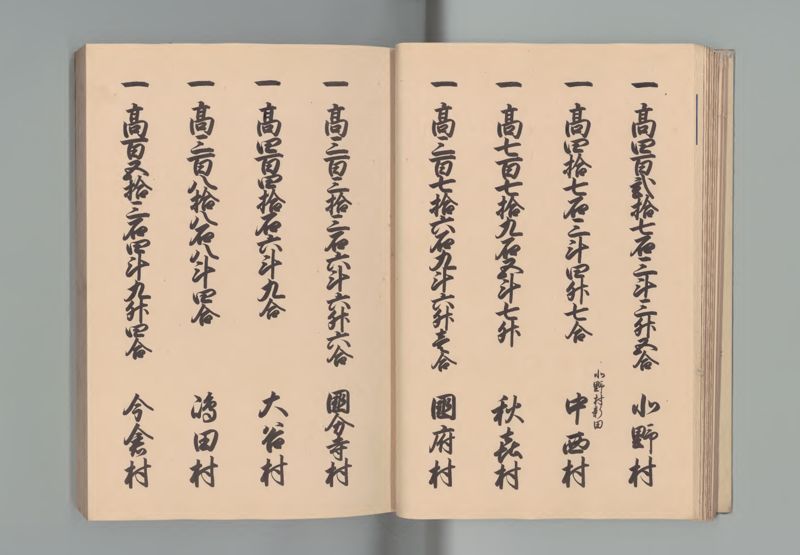 一 高四百弐拾七石三斗三升五合 小野村
一 高四拾七石三斗四升七合 小野村新田 中西村
一 高七百七拾九石五斗七升 秋喜村
一 高三百七拾六石九斗六升壱合 國府村
一 高三百三拾三石六斗六升六合 國分寺村
一 高四百四拾石六斗九合 大谷村
一 高三百八拾八石八斗四合 嶋田村
一 高百五拾三石四斗九升四合 今倉村